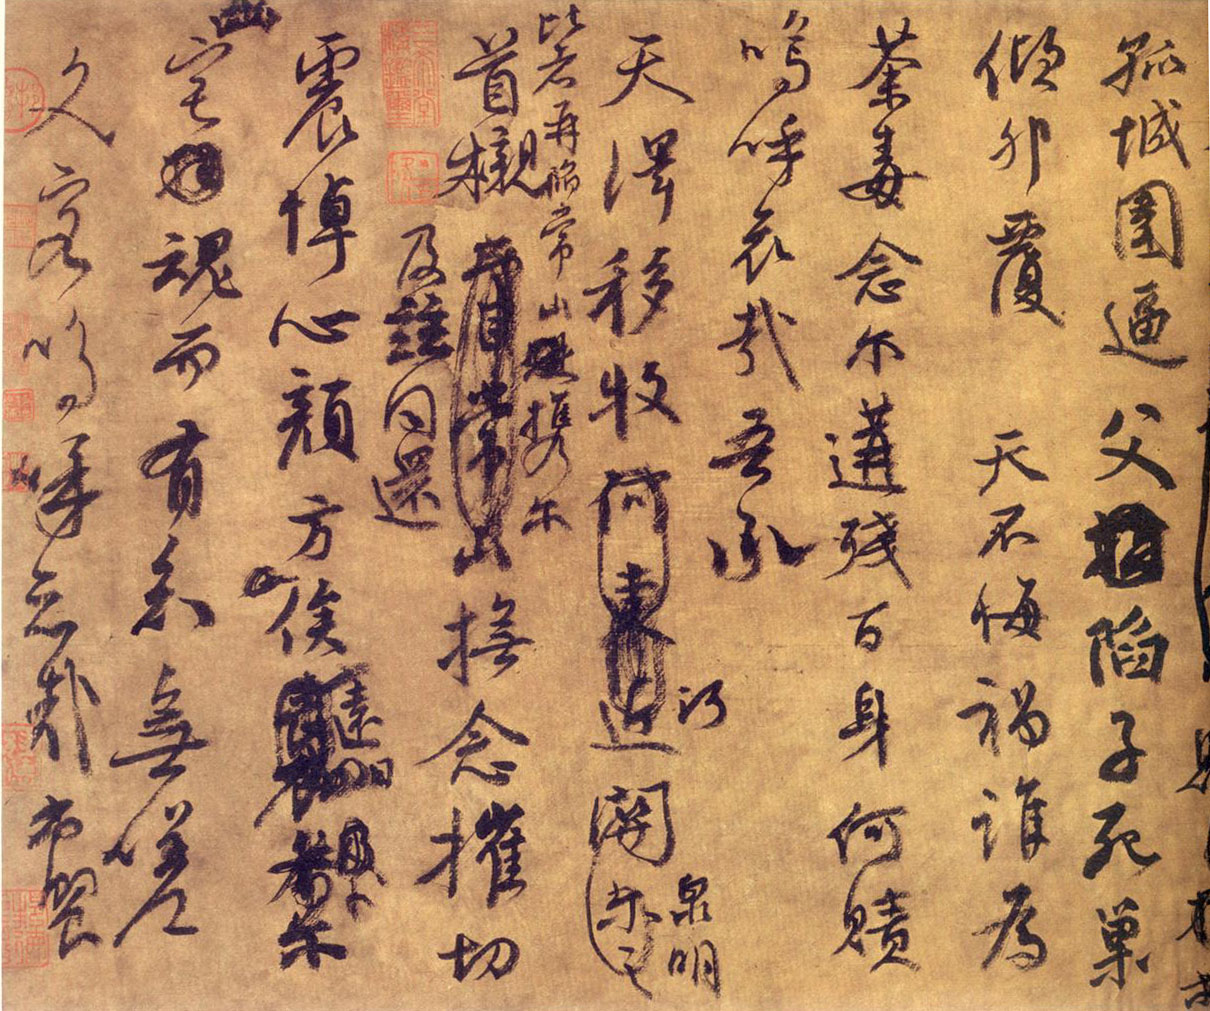 孤城圍逼父陷子死巢
傾卵覆天不悔禍誰為
荼毒念尔遘殘百身何贖
嗚呼哀哉吾承
天澤移牧河關泉明
比者再陷常山携尔
首櫬
及茲同還
撫念摧切
震悼心顏方俟遠日卜尔
幽宅魂而有知無嗟
久客嗚呼哀哉尚饗